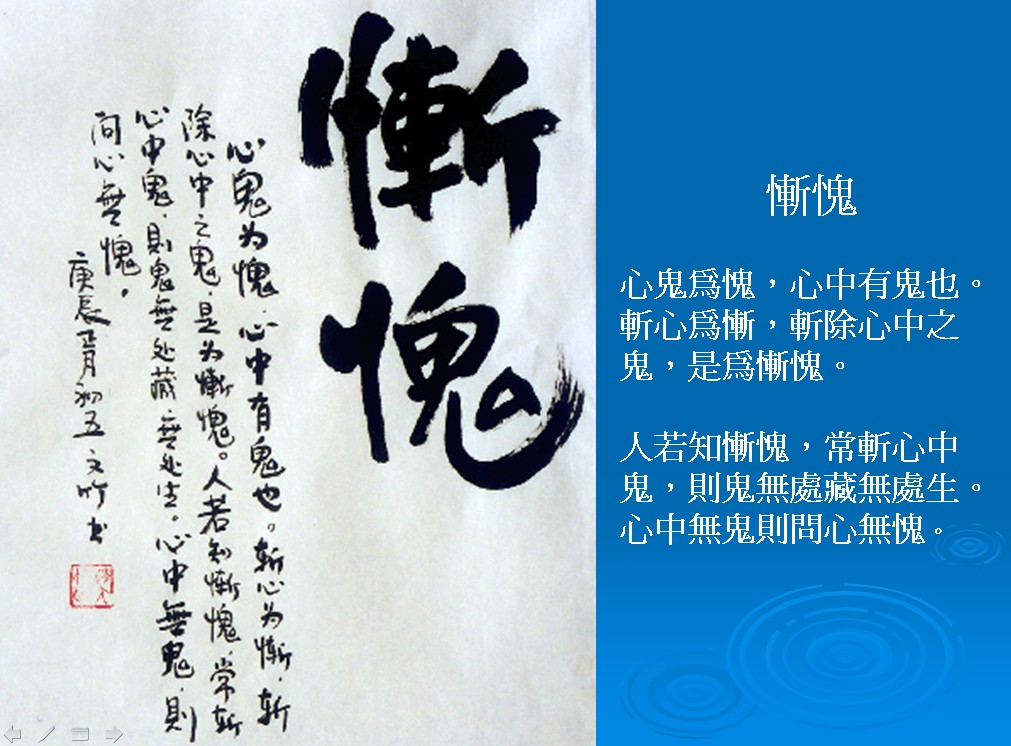 慚愧
心鬼为愧.心中有鬼也。斬心为慚.斬
除心中之鬼.是为慚愧。人若知慚愧.常斬
心中鬼.則鬼無处藏無处生。心中無鬼.則
问心無愧。
庚辰正月初五 文竹书
慚愧
心鬼爲愧，心中有鬼也。
斬心爲慚，斬除心中之
鬼，是爲慚愧。
人若知慚愧，常斬心中
鬼，則鬼無處藏無處生。
心中無鬼則問心無愧。